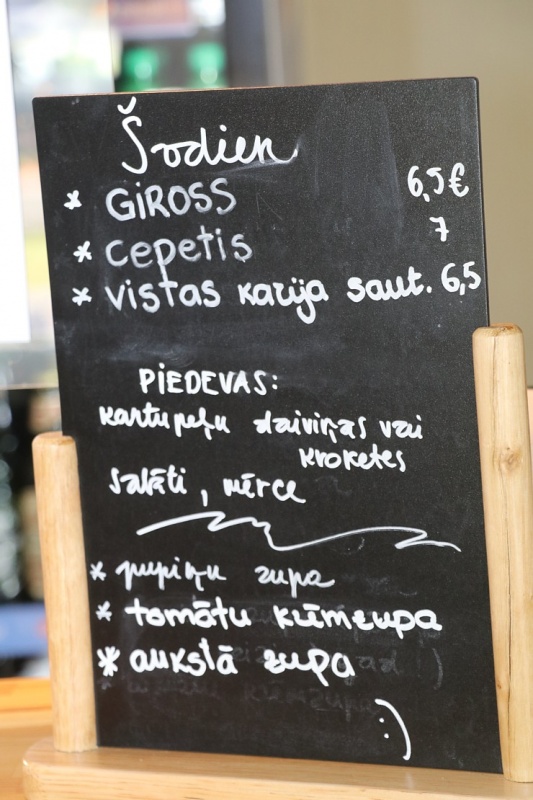 Šodien
* GIROSS 6,5€
* cepetis 7
* vistas karija saut. 6,5
PIEDEVAS:
kartupeļu daiviņas vai
kroketes
salāti, mērce
* pupiņu zupa
* tomātu krēmzupa
* aukstā zupa
:)